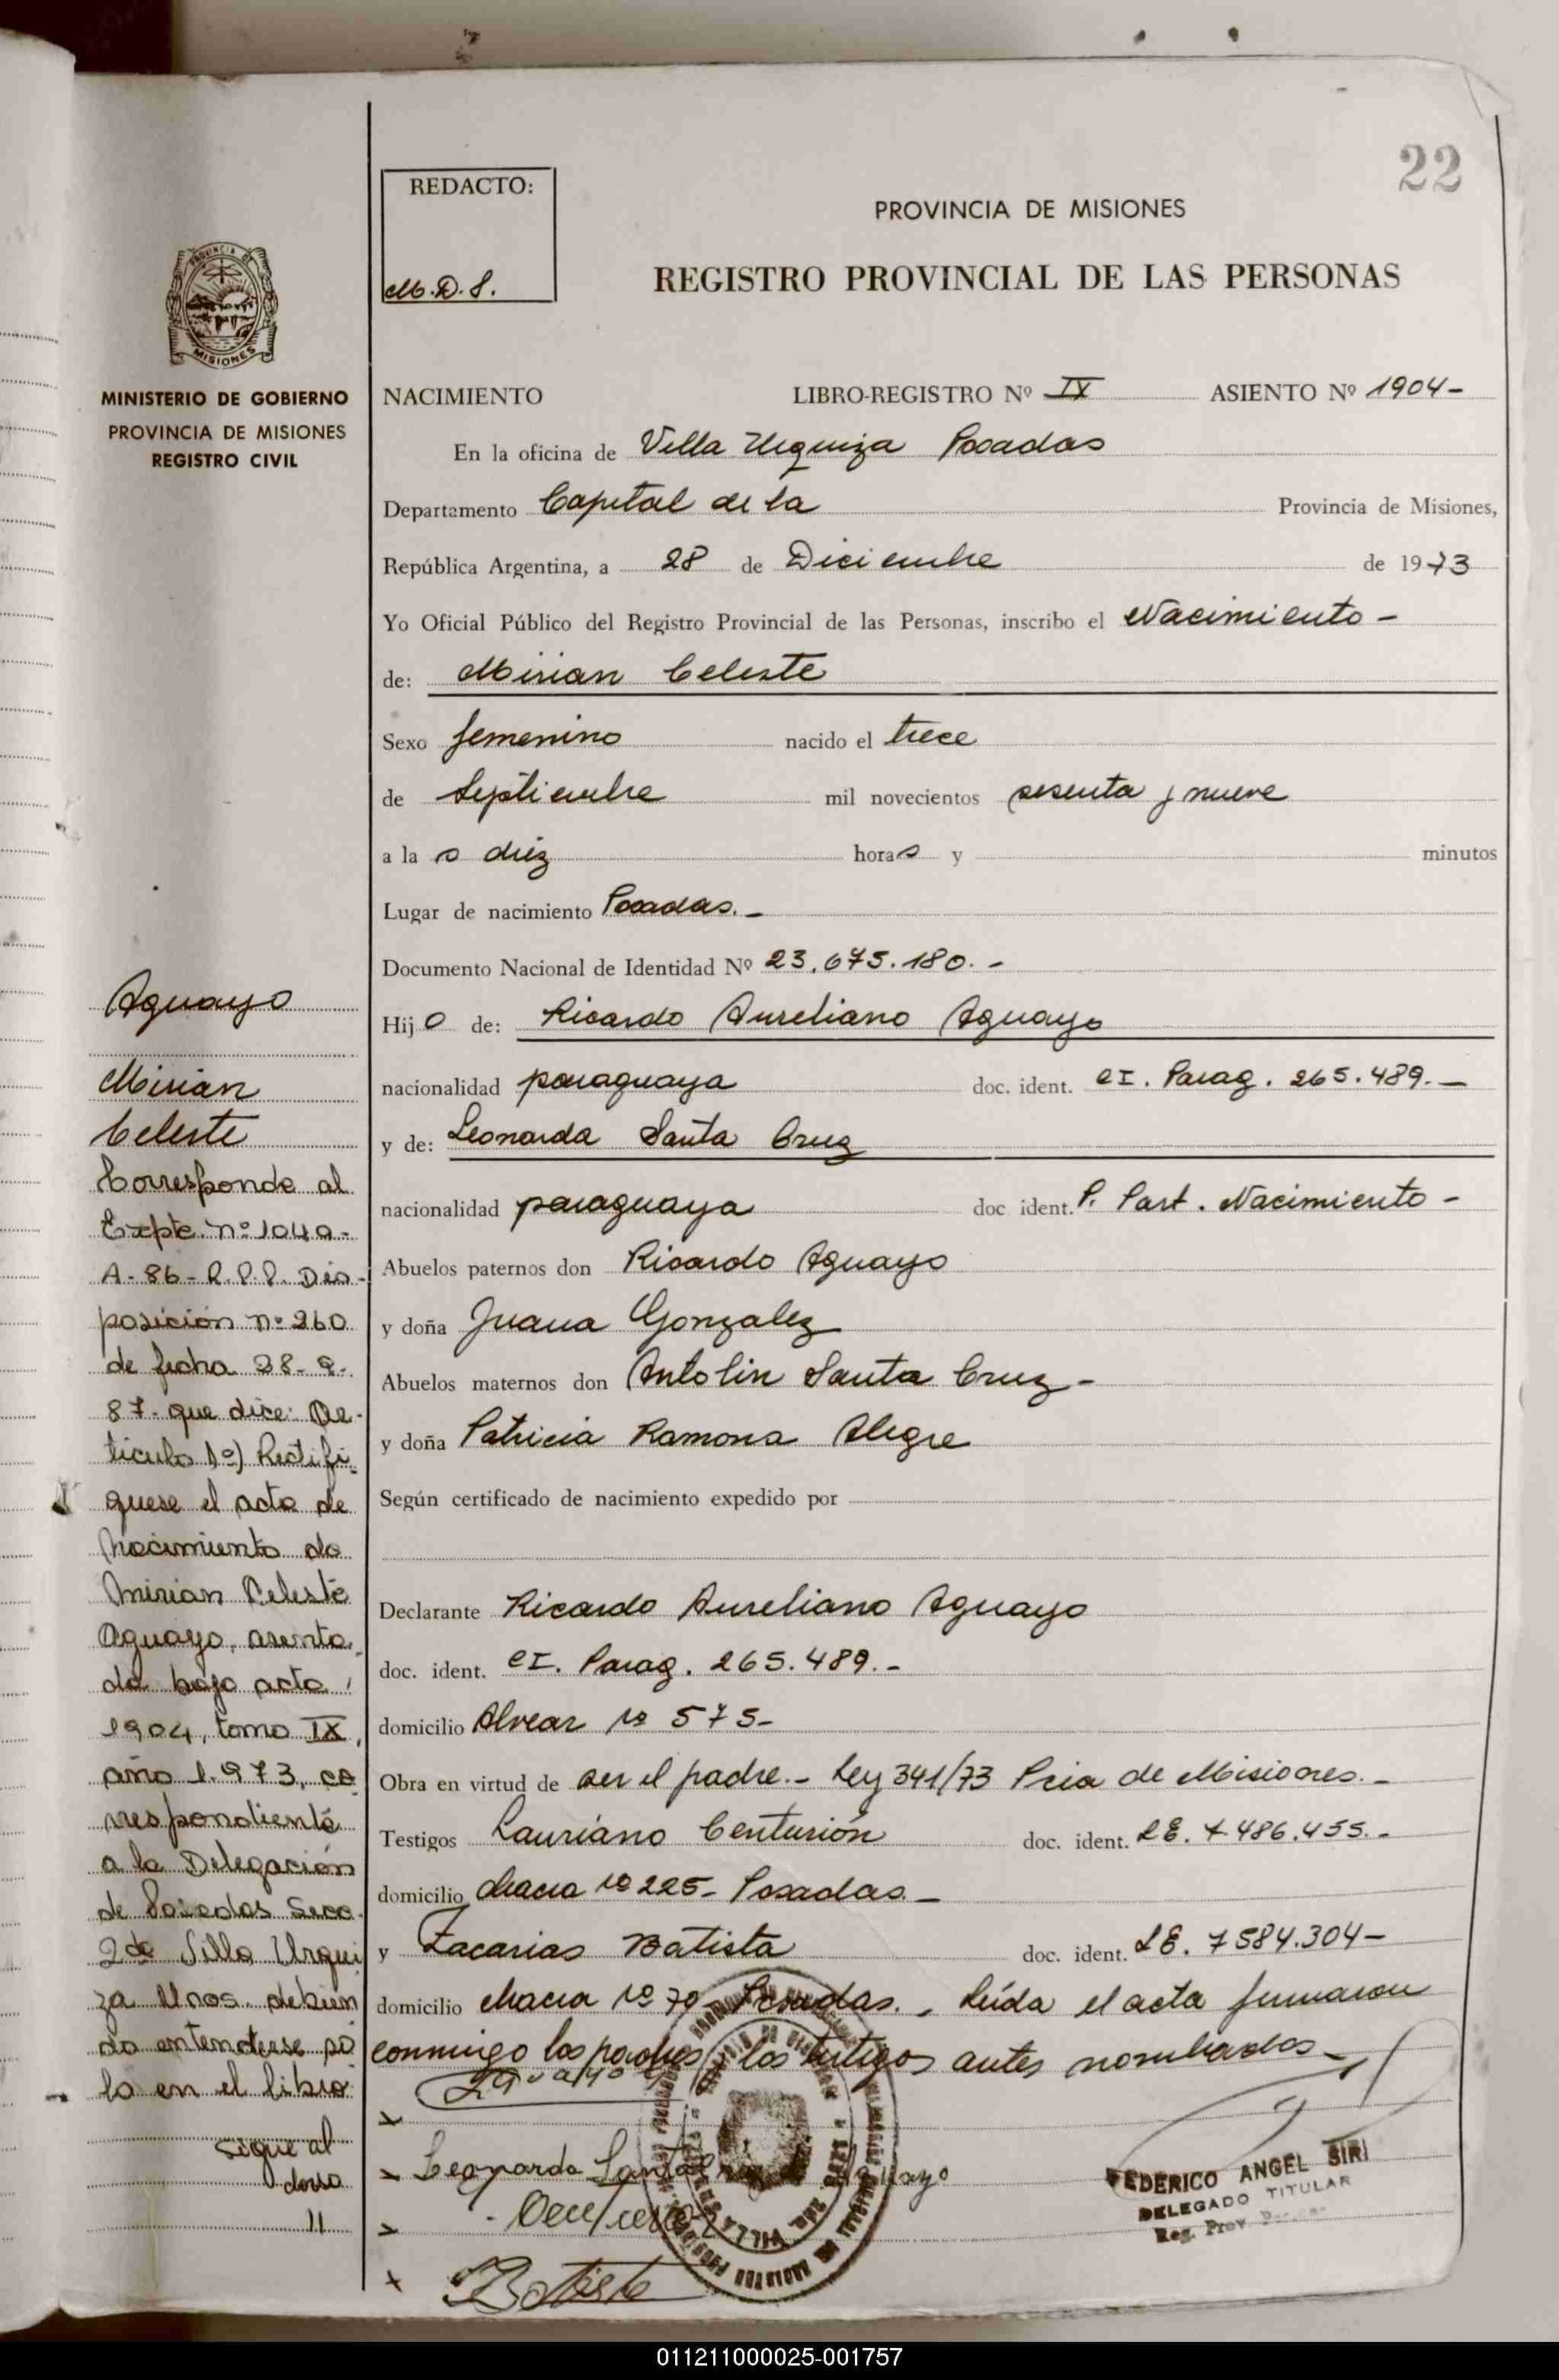 22
REDACTO:
M.D.S.
PROVINCIA DE MISIONES
REGISTRO PROVINCIAL DE LAS PERSONAS
PROVINCIA DE
MISIONES
MINISTERIO DE GOBIERNO
PROVINCIA DE MISIONES
REGISTRO CIVIL
NACIMIENTO LIBRO-REGISTRO Nº IX ASIENTO Nº 1904-
En la oficina de Villa Urquiza Posadas
Departamento Capital de la Provincia de Misiones,
República Argentina, a 28 de Diciembre de 1973
Yo Oficial Público del Registro Provincial de las Personas, inscribo el Nacimiento -
de: Mirian Celeste
Sexo femenino nacido el trece
de Septiembre mil novecientos sesenta y nueve
a la s diéz horas y minutos
Lugar de nacimiento Posadas.-
Documento Nacional de Identidad Nº 23.675.180.-
Hijo de: Ricardo Aureliano Aguayo
nacionalidad paraguaya doc. ident. CI. Parag. 265.489.-
y de: Leonarda Santa Cruz
nacionalidad paraguaya doc ident. P. Part. Nacimiento -
Abuelos paternos don Ricardo Aguayo
y doña Juana Gonzalez
Abuelos maternos don Antolin Santa Cruz -
y doña Patricia Ramona Alegre
Según certificado de nacimiento expedido por
Declarante Ricardo Aureliano Aguayo
doc. ident. CI. Parag. 265.489.-
domicilio Alvear Nº 575-
Obra en virtud de ser el padre.- Ley 341/73 Pcia de Misiones.-
Testigos Lauriano Centurión doc. ident. LE. 7.486.455.-
domicilio chacra Nº 225- Posadas.-
y Zacarias Batista doc. ident. LE. 7584.304-
domicilio chacra Nº 70- Posadas.- Leída el acta firmaron
conmigo los padres y los testigos antes nombrados-
Leonarda Santa Cruz
Batista
FEDERICO ANGEL SIRI
DELEGADO TITULAR
Reg. Prov.
Aguayo
Mirian
Celeste
Corresponde al
Expte. nº 1040-
A-86-R.P.P. Dis-
posición nº 260
de fecha 28-2-
87- que dice: Ar-
tículo 1º) Rectifi-
quese el acta de
Nacimiento de
Mirian Celeste
Aguayo, asenta-
da bajo acta
1904, tomo IX,
año 1.973, co
rrespondiente
a la Delegación
de Posadas Secc.
2da Villa Urqui
za Mnos. debien
do entenderse so
lo en el libro
sigue al
dorso
//
011211000025-001757